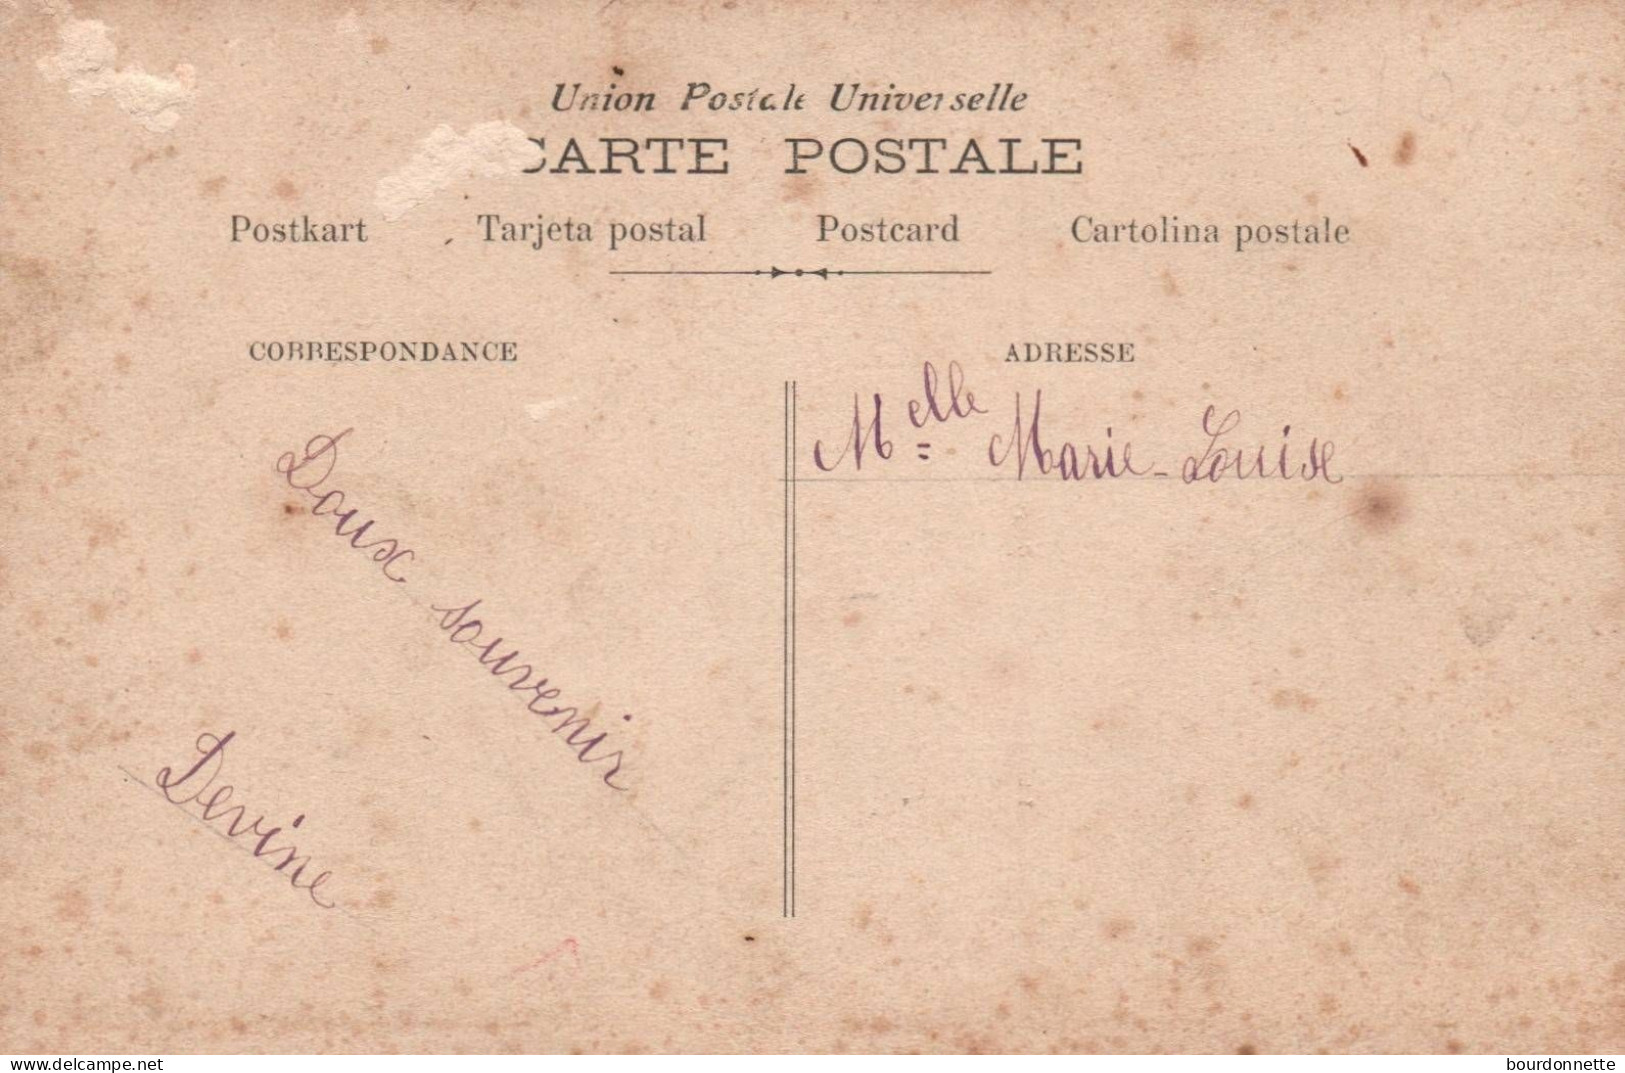 Union Postale Universelle
CARTE POSTALE
Postkart Tarjeta postal Postcard Cartolina postale
CORRESPONDANCE
ADRESSE
Melle Marie-Louise
Doux souvenir
Devine
delcampe.net
bourdonnette